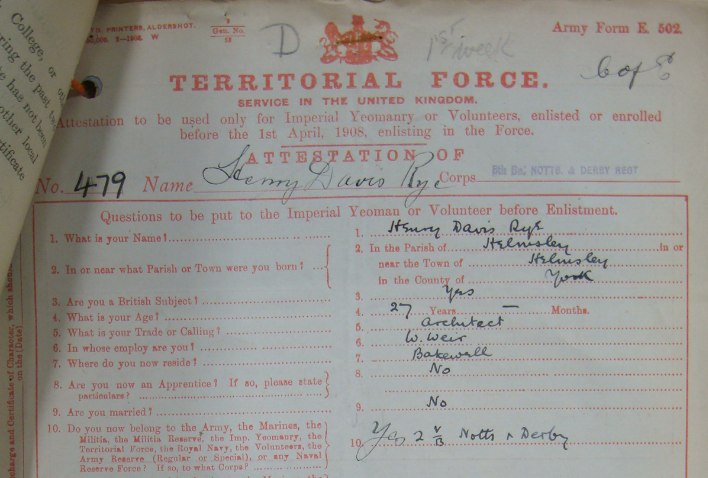 College, or
ring the past
has not been
other local
certificate
charge and Certificate of Character, which
on the (Date)
D., PRINTERS, ALDERSHOT.
9—1908. W
Gen. No.
D
1st week
Army Form E. 502.
6 of
TERRITORIAL FORCE.
SERVICE IN THE UNITED KINGDOM.
Attestation to be used only for Imperial Yeomanry or Volunteers, enlisted or enrolled
before the 1st April, 1908, enlisting in the Force.
ATTESTATION OF
No. 479 Name Henry Davis Rye Corps 6th Bn. NOTTS. & DERBY REGT
Questions to be put to the Imperial Yeoman or Volunteer before Enlistment.
1. What is your Name? 1. Henry Davis Rye
2. In or near what Parish or Town were you born? 2. In the Parish of Helmsley in or
near the Town of Helmsley
in the County of York
3. Are you a British Subject? 3. Yes
4. What is your Age? 4. 27 Years — Months.
5. What is your Trade or Calling? 5. Architect
6. In whose employ are you? 6. W. Weir
7. Where do you now reside? 7. Bakewell
8. Are you now an Apprentice? If so, please state 8. No
particulars?
9. Are you married? 9. No
10. Do you now belong to the Army, the Marines, the
Militia, the Militia Reserve, the Imp. Yeomanry, the
Territorial Force, the Royal Navy, the Volunteers, the 10. Yes 2 VB Notts & Derby
Army Reserve (Regular or Special), or any Naval
Reserve Force? If so, to what Corps?